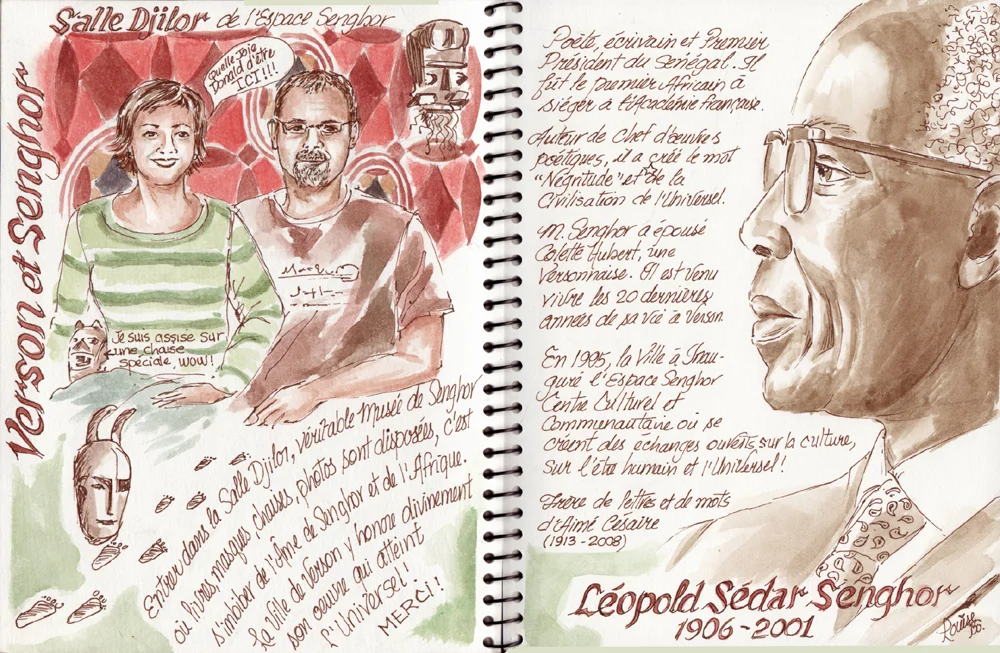 Salle Djilor de l'Espace Senghor
Verson et Senghor
Quelle Joie
Donald d'être
ICI!!!
Je suis assise sur
une chaise
spéciale, WOW!
Entrer dans la Salle Djilor, véritable Musée de Senghor
où livres, masques, chaises, photos sont disposées, c'est
s'imbiber de l'Âme de Senghor et de l'Afrique.
La Ville de Verson y honore divinement
son oeuvre qui atteint
l'Universel!
MERCI!
Poète, écrivain et Premier
Président du Sénégal. Il
fût le premier Africain à
siéger à l'Académie Française.
Auteur de Chef d'oeuvres
poétiques, il a créé le mot
"Négritude" et de la
Civilisation de l'Universel.
M. Senghor a épousé
Colette Hubert, une
Versonnaise. Il est venu
vivre les 20 dernières
années de sa vie à Verson
En 1995, la Ville a Inau-
guré l'Espace Senghor
Centre Culturel et
Communautaire où se
créent des échanges ouverts, sur la culture,
sur l'être humain et l'Universel!
Frère de lettres et de mots
d'Aimé Césaire
(1913-2008)
Léopold Sédar Senghor
1906-2001